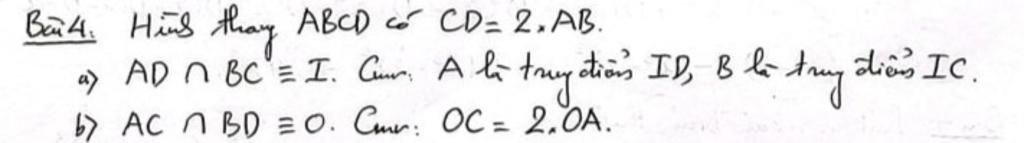 Bài 4. Hình thang ABCD có CD = 2.AB.
a) AD ∩ BC ≡ I. Cmr. A là trung điểm ID, B là trung điểm IC.
b) AC ∩ BD ≡ O. Cmr: OC = 2.OA.